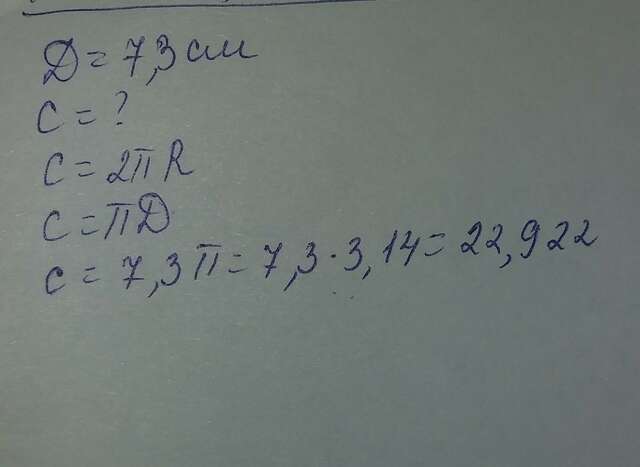 Д = 7,3 см
C = ?
C = 2πR
C = πД
C = 7,3π = 7,3 · 3,14 = 22,922